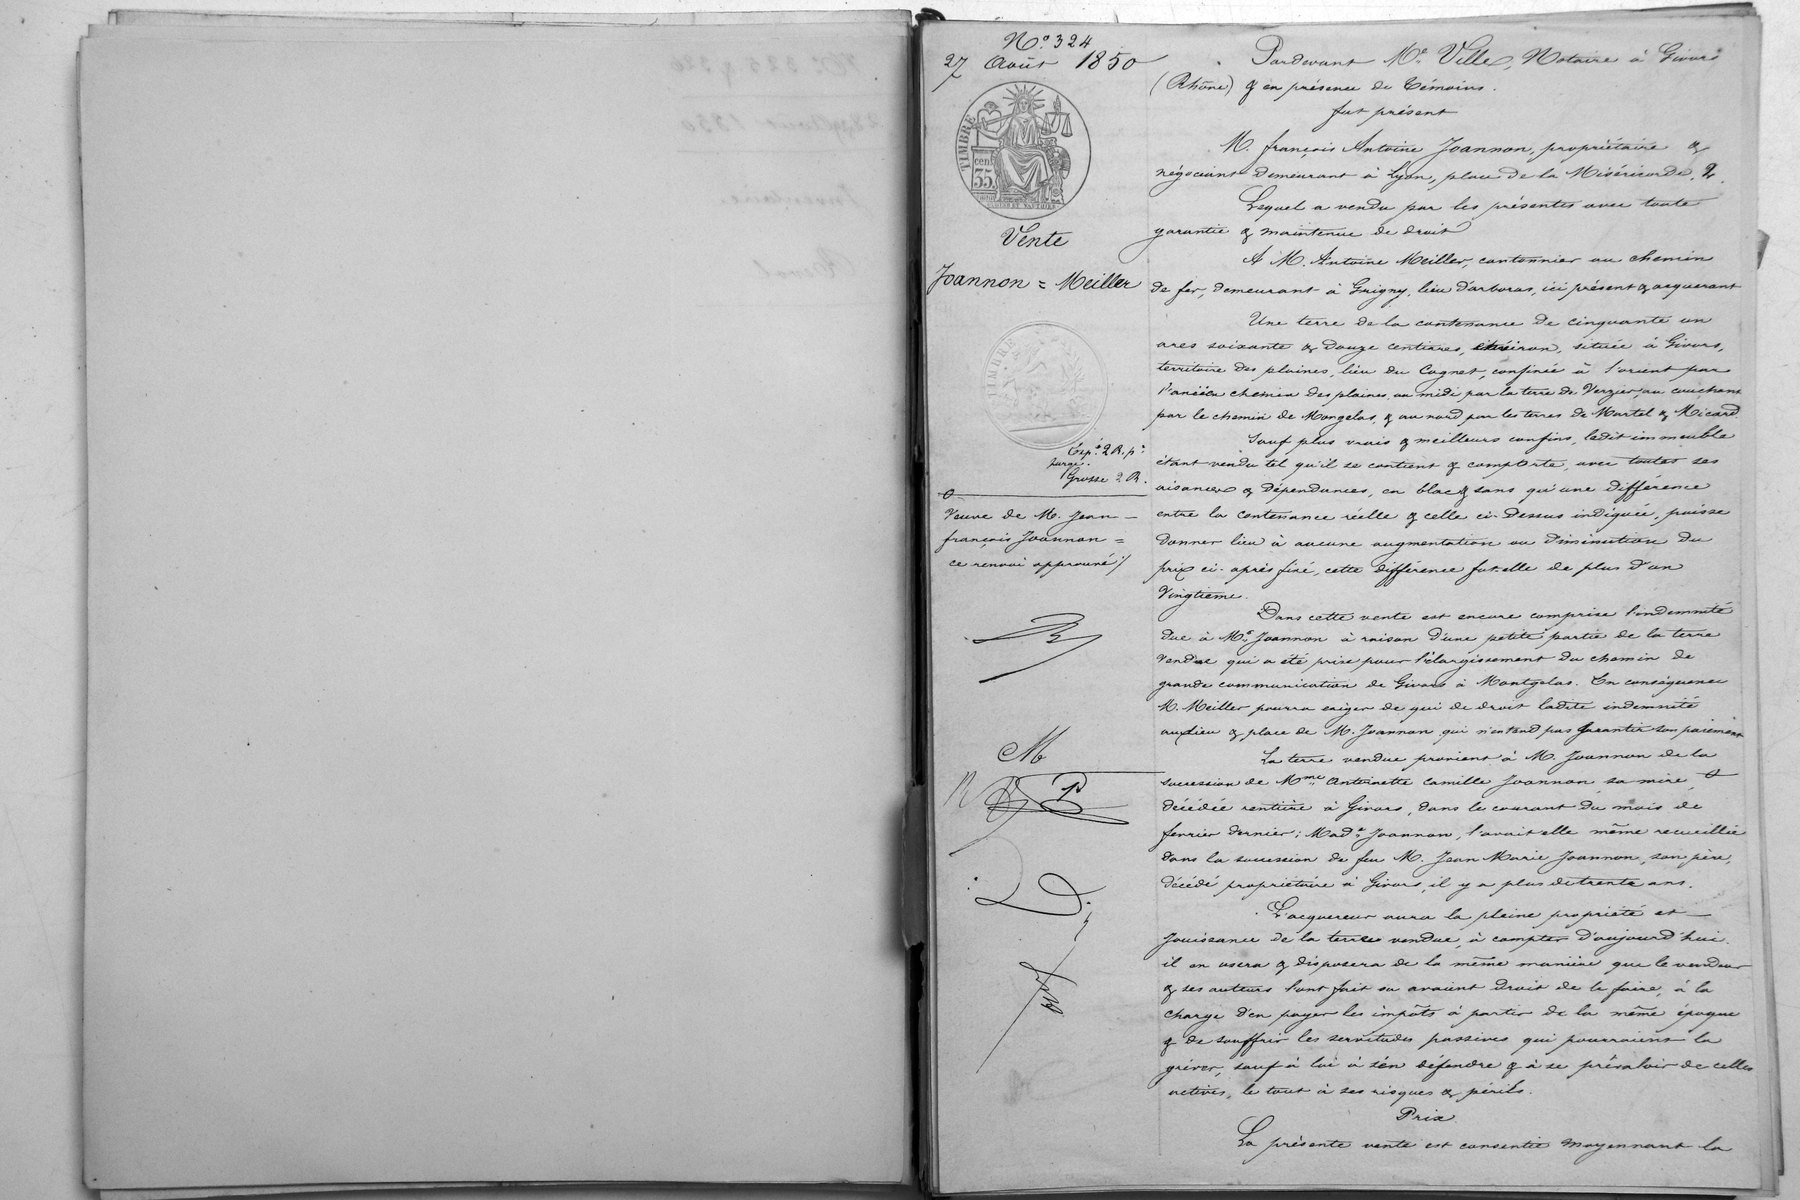 N.° 324
27 Août 1850
TIMBRE
cent
35
Vente
Joannon = Meiller
TIMBRE
Exp.on 2 R. p.r
purge.
Grosse 2 R.
Veuve de M. Jean
françois Joannon =
ce renvoi approuvé/
Pardevant M.e Ville, Notaire à Givors
(Rhône) & en présence de témoins.
fut présent
M. françois Antoine Joannon, propriétaire &
négociant demeurant à Lyon, place de la Miséricorde, 2.
Lequel a vendu par les présentes avec toute
garantie & maintenue de droit
A M. Antoine Meiller, cantonnier au chemin
de fer, demeurant à Grigny, lieu d'arboras, ici présent & acquérant
Une terre de la contenance de cinquante un
ares soixante & douze centiares, environ, située à Givors,
territoire des plaines, lieu du Cognet, confinée à l'orient par
l'ancien chemin des plaines, au midi par la terre de Verzier, au couchant
par le chemin de Mongelas, & au nord par les terres de Martel & Micard
Sauf plus vrais & meilleurs confins, ledit immeuble
étant vendu tel qu'il se contient & comporte, avec toutes ses
aisances & dépendances, en bloc & sans qu'une différence
entre la contenance réelle & celle ci-dessus indiquée, puisse
donner lieu à aucune augmentation ou diminution du
prix ci-après fixé, cette différence fut-elle de plus d'un
Vingtième.
Dans cette vente est encore comprise l'indemnité
due à M.r Joannon à raison d'une petite partie de la terre
vendue qui a été prise pour l'élargissement du chemin de
grande communication de Givors à Montgelas. En conséquence
M. Meiller pourra exiger de qui de droit ladite indemnité
au lieu & place de M. Joannon qui n'entend pas garantir son paiement
La terre vendue provient à M. Joannon de la
succession de Mme Antoinette Camille Joannon, sa mère,
décédée rentière à Givors, dans le courant du mois de
fevrier dernier; Mad.e Joannon, l'avait elle même recueillie
dans la succession de feu M. Jean Marie Joannon, son père,
décédé propriétaire à Givors, il y a plus de trente ans.
L'acquereur aura la pleine propriété et
jouissance de la terre vendue, à compter d'aujourd'hui.
il en usera & disposera de la même manière que le vendeur
& ses auteurs l'ont fait ou avaient droit de le faire, à la
charge d'en payer les impôts à partir de la même époque
& de souffrir les servitudes passives qui pourraient la
grever, sauf à lui à s'en défendre & à se prévaloir de celles
actives, le tout à ses risques & périls.
Prix
La présente vente est consentie moyennant la